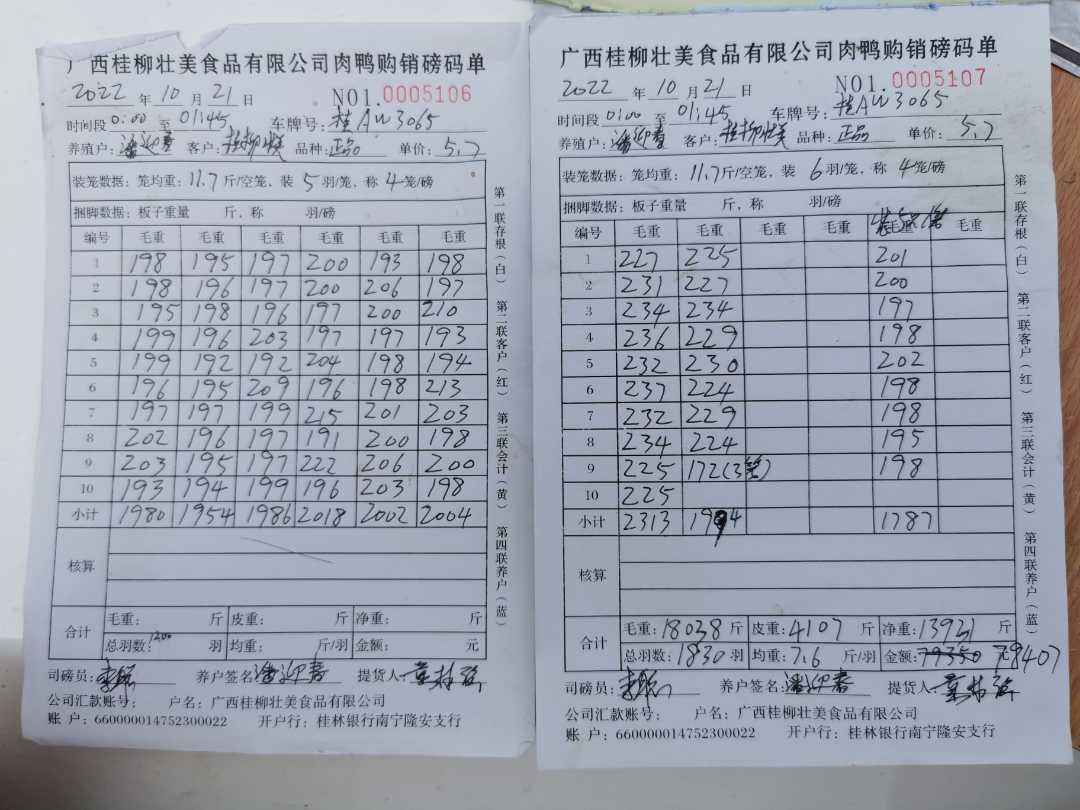 广西桂柳壮美食品有限公司肉鸭购销磅码单
2022 年 10 月 21 日 NO1.0005106
时间段 0:00 至 01:45 车牌号: 桂AW3065
养殖户: 潘迎春 客户: 桂柳壮美 品种: 正品 单价: 5.7
装笼数据: 笼均重: 11.7 斤/空笼，装 5 羽/笼，称 4 笼/磅
捆脚数据: 板子重量 斤，称 羽/磅
编号 毛重 毛重 毛重 毛重 毛重 毛重
1 198 195 197 200 193 198
2 198 196 197 200 206 197
3 195 198 196 197 200 210
4 199 196 203 197 197 193
5 199 192 192 204 198 194
6 196 195 209 196 198 213
7 197 197 199 215 201 203
8 202 196 197 191 200 198
9 203 195 197 222 206 200
10 193 194 199 196 203 198
小计 1980 1954 1986 2018 2002 2004
核算
合计 毛重: 斤 皮重: 斤 净重: 斤
总羽数: 1200 羽 均重: 斤/羽 金额: 元
司磅员: 养户签名: 潘迎春 提货人
公司汇款账号: 户名: 广西桂柳壮美食品有限公司
账 户: 660000014752300022 开户行: 桂林银行南宁隆安支行
第一联存根(白) 第二联客户(红) 第三联会计(黄) 第四联养户(蓝)
广西桂柳壮美食品有限公司肉鸭购销磅码单
2022 年 10 月 21 日 NO1.0005107
时间段 01:00 至 01:45 车牌号: 桂AW3065
养殖户: 潘迎春 客户: 桂柳壮美 品种: 正品 单价: 5.7
装笼数据: 笼均重: 11.7 斤/空笼，装 6 羽/笼，称 4 笼/磅
捆脚数据: 板子重量 斤，称 羽/磅
编号 毛重 毛重 毛重 毛重 毛重 毛重
1 227 225 201
2 231 227 200
3 234 234 197
4 236 229 198
5 232 230 202
6 237 224 198
7 232 229 198
8 234 224 195
9 225 172(3笼) 198
10 225
小计 2313 1994 1787
核算
合计 毛重: 18038 斤 皮重: 4107 斤 净重: 13931 斤
总羽数: 1830 羽 均重: 7.6 斤/羽 金额: 79350 元 79407
司磅员: 养户签名: 潘迎春 提货人
公司汇款账号: 户名: 广西桂柳壮美食品有限公司
账 户: 660000014752300022 开户行: 桂林银行南宁隆安支行
第一联存根(白) 第二联客户(红) 第三联会计(黄) 第四联养户(蓝)